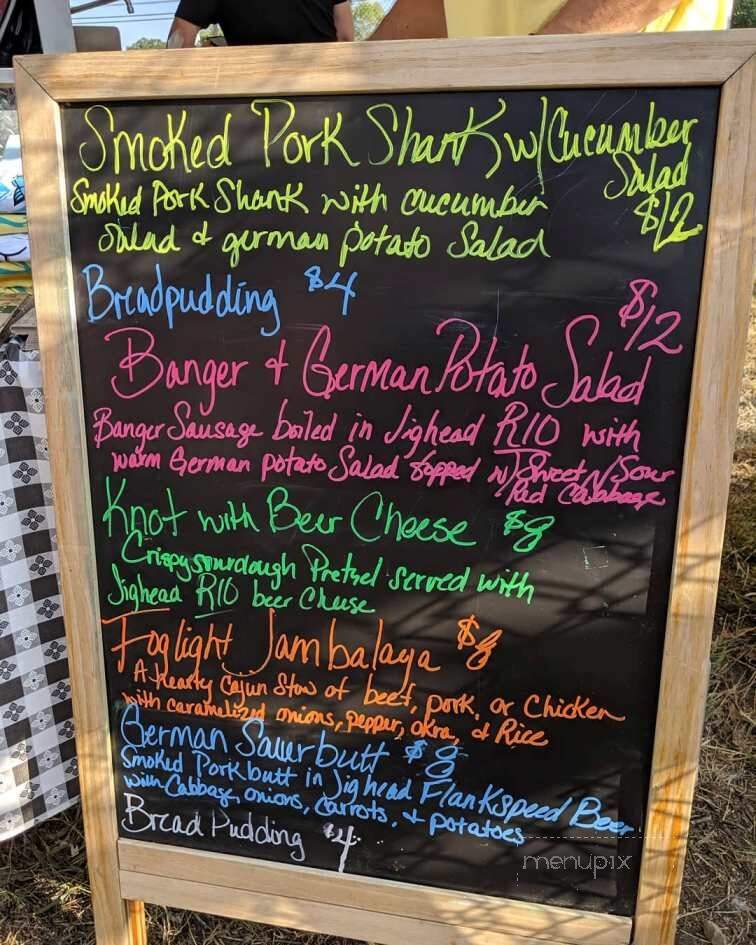 Smoked Pork Shank w/Cucumber
Salad
$12
Smoked Pork Shank with cucumber
Salad & german potato Salad
Breadpudding $4
$12
Banger & German Potato Salad
Banger Sausage boiled in Jighead R10 with
warm German potato Salad topped w/ Sweet N Sour
Red Cabbage
Knot with Beer Cheese $8
Crispy sourdough Pretzel served with
Jighead R10 beer Cheese
Foglight Jambalaya $8
A hearty Cajun Stow of beef, pork, or Chicken
with caramelized onions, pepper, okra, & Rice
German Sauerbutt $8
Smoked Pork butt in Jighead Flankspeed Beer
with Cabbage, onions, carrots, & potatoes
Bread Pudding $4
menupix